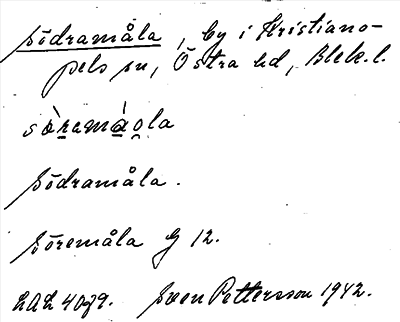 Södramåla, by i Kristiano-
pels sn, Östra hd, Blek. l.
sòremàola
Södramåla.
Söremåla G 12.
LAL 4079. Sven Pettersson 1942.